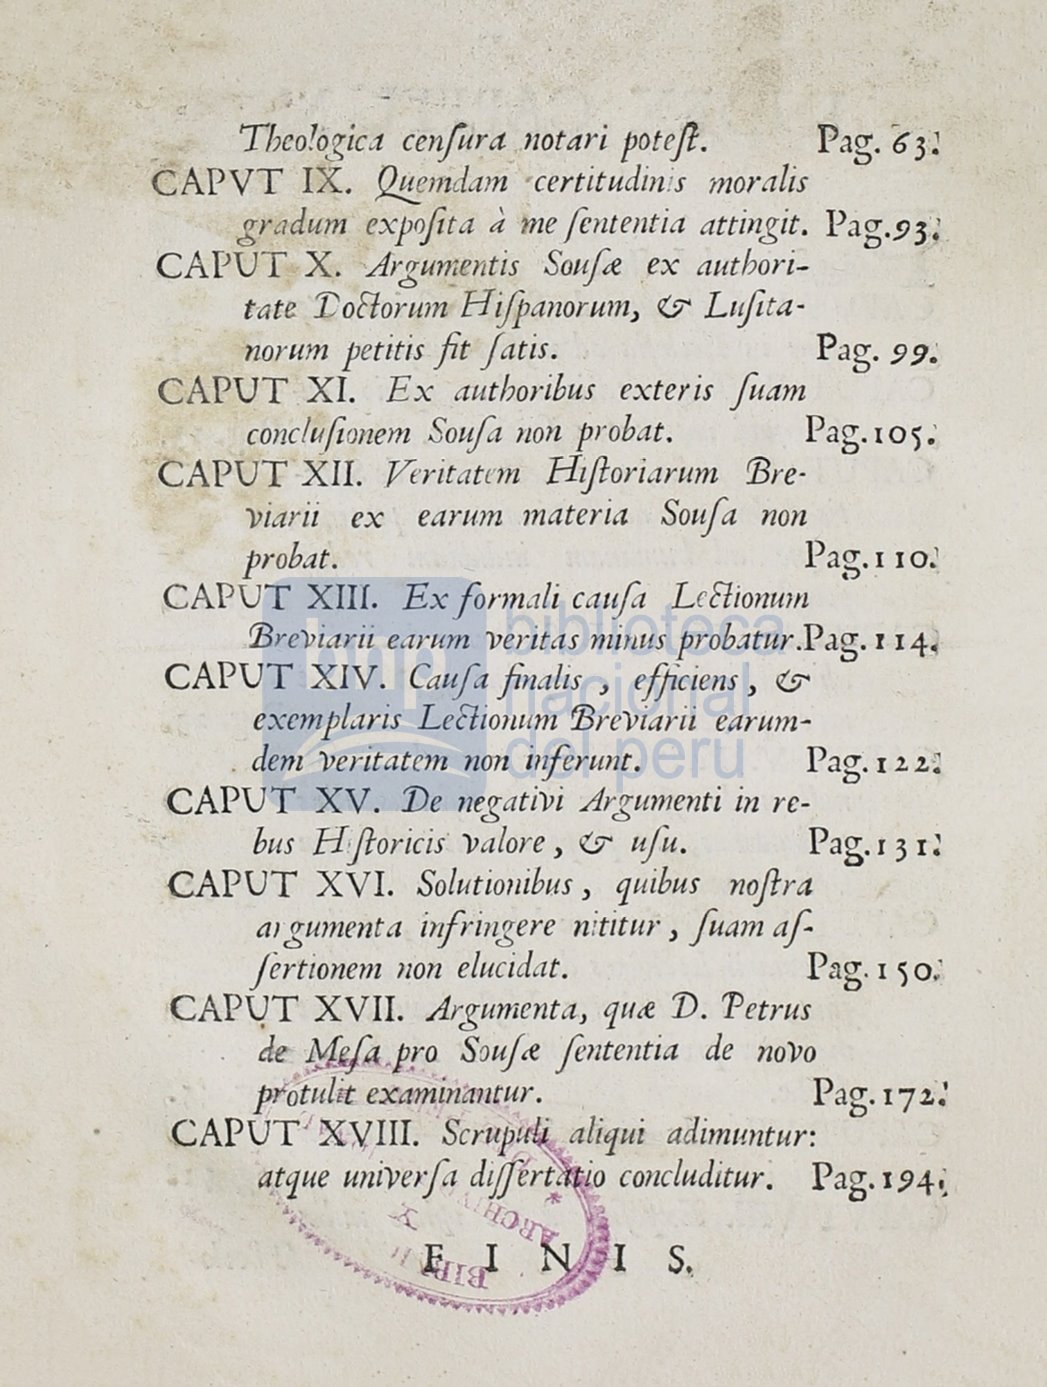 Theologica censura notari potest. Pag. 63.
CAPVT IX. Quemdam certitudinis moralis
gradum exposita à me sententia attingit. Pag.93.
CAPUT X. Argumentis Sousæ ex authori-
tate Doctorum Hispanorum, & Lusita-
norum petitis fit satis. Pag. 99.
CAPUT XI. Ex authoribus exteris suam
conclusionem Sousa non probat. Pag.105.
CAPUT XII. Veritatem Historiarum Bre-
viarii ex earum materia Sousa non
probat. Pag.110.
CAPUT XIII. Ex formali causa Lectionum
Breviarii earum veritas minus probatur.Pag.114.
CAPUT XIV. Causa finalis, efficiens, &
exemplaris Lectionum Breviarii earum-
dem veritatem non inferunt. Pag.122.
CAPUT XV. De negativi Argumenti in re-
bus Historicis valore, & usu. Pag.131.
CAPUT XVI. Solutionibus, quibus nostra
argumenta infringere nititur, suam as-
sertionem non elucidat. Pag.150.
CAPUT XVII. Argumenta, quæ D. Petrus
de Mesa pro Sousæ sententia de novo
protulit examinantur. Pag.172.
CAPUT XVIII. Scrupuli aliqui adimuntur:
atque universa dissertatio concluditur. Pag.194.
FINIS.
bnp biblioteca
nacional
del perú